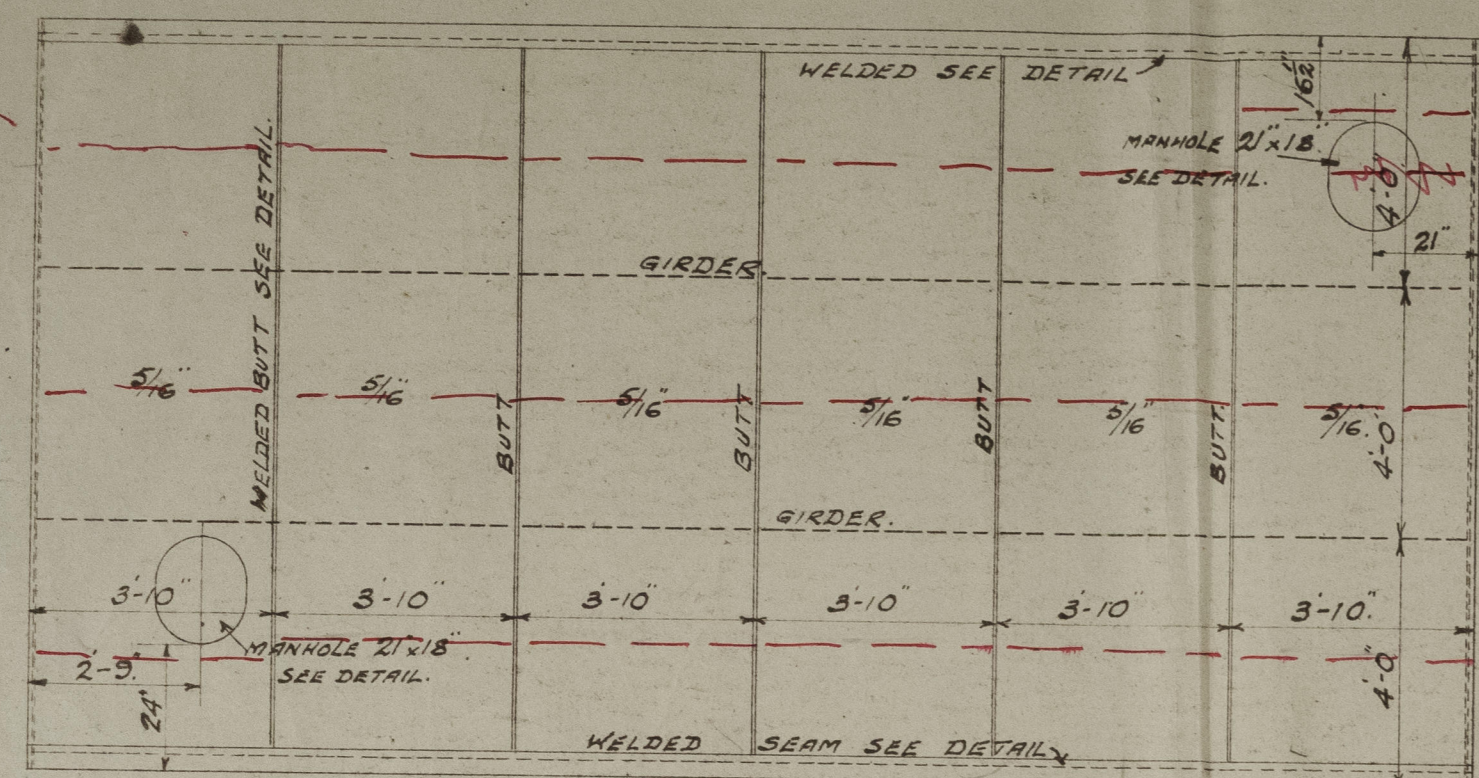 WELDED SEE DETAIL
16½"
MANHOLE 21"x18"
SEE DETAIL.
4'-0"
21"
WELDED BUTT SEE DETAIL.
GIRDER.
5/16"
5/16"
5/16"
5/16"
5/16"
5/16"
BUTT
BUTT
BUTT
BUTT.
4'-0"
GIRDER.
3'-10"
3'-10"
3'-10"
3'-10"
3'-10"
3'-10"
MANHOLE 21"x18"
SEE DETAIL.
2'-9"
24"
4'-0"
WELDED SEAM SEE DETAIL